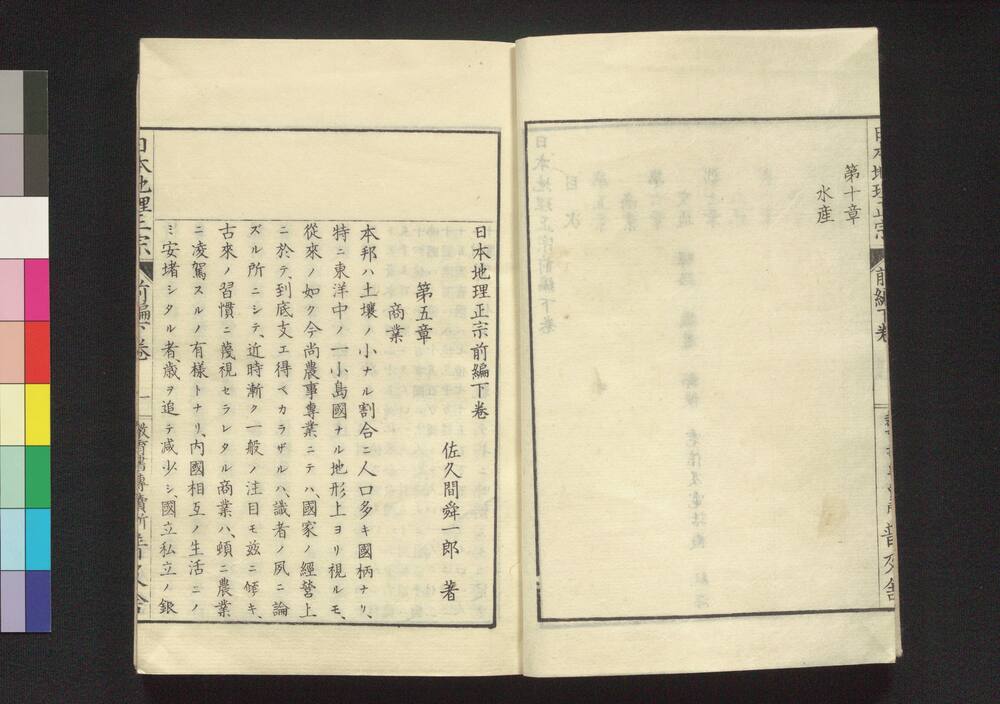 日本地理正宗
前編下卷
普及舍
第十章
水産
日本地理正宗前編下卷
佐久間舜一郎 著
第五章
商業
本邦ハ土壤ノ小ナル割合ニ人口多キ國柄ナリ、
特ニ東洋中ノ一小島國ナル地形上ヨリ視ルモ、
從來ノ如ク今尚農事專業ニテハ、國家ノ經營上
ニ於テ、到底支エ得ベカラザルハ、識者ノ夙ニ論
ズル所ニシテ、近時漸ク一般ノ注目モ玆ニ傾キ、
古來ノ習慣ニ蔑視セラレタル商業ハ、頓ニ農業
ニ凌駕スルノ有樣トナリ、内國相互ノ生活ニノ
ミ安堵シタル者歳ヲ追テ减少シ、國立私立ノ銀
日本地理正宗
前編下卷
一
教育書專賣所普及舍